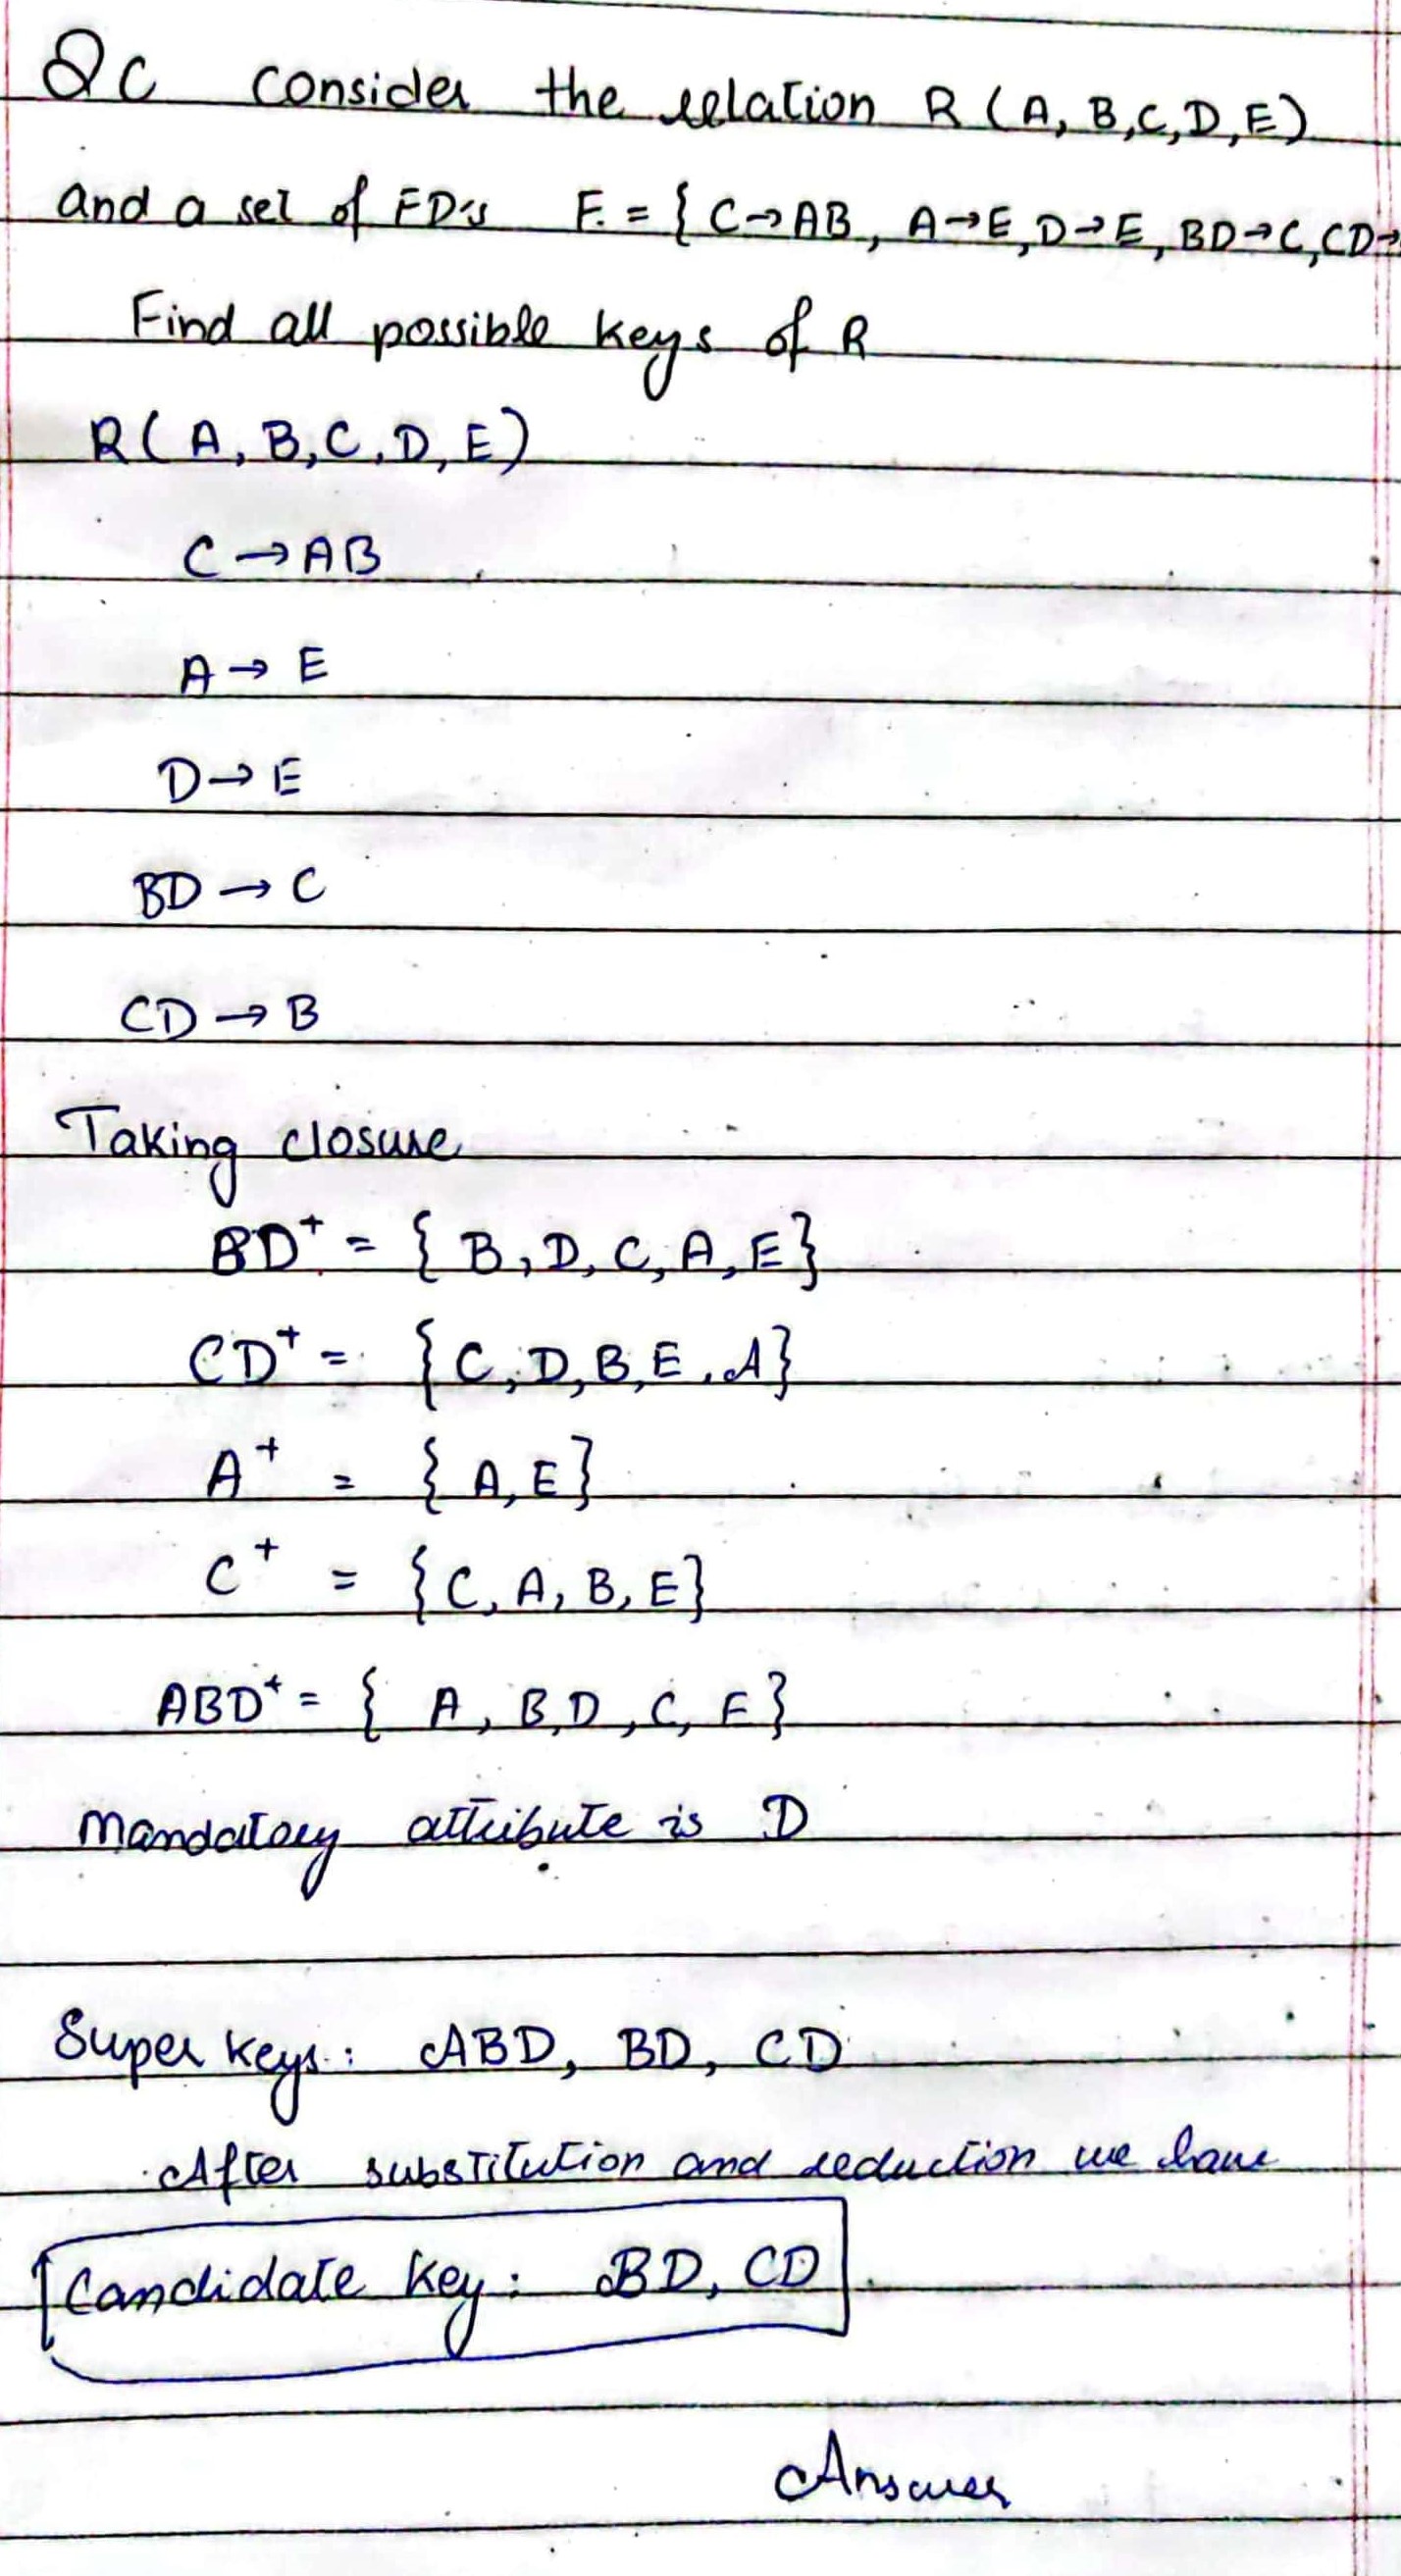 QC consider the relation R (A, B,C,D,E)
and a set of FD's F. = { C→AB, A→E,D→E, BD→C,CD→
Find all possible keys of R
R(A,B,C,D,E)
C→AB
A→E
D→E
BD→C
CD→B
Taking closure
BD⁺ = { B,D,C,A,E}
CD⁺ = {C,D,B,E,A}
A⁺ = { A,E}
C⁺ = {C,A,B,E}
ABD⁺ = { A,B,D,C,E}
Mandatory attribute is D
Super keys: ABD, BD, CD
After substitution and reduction we have
Candidate key: BD, CD
Answer